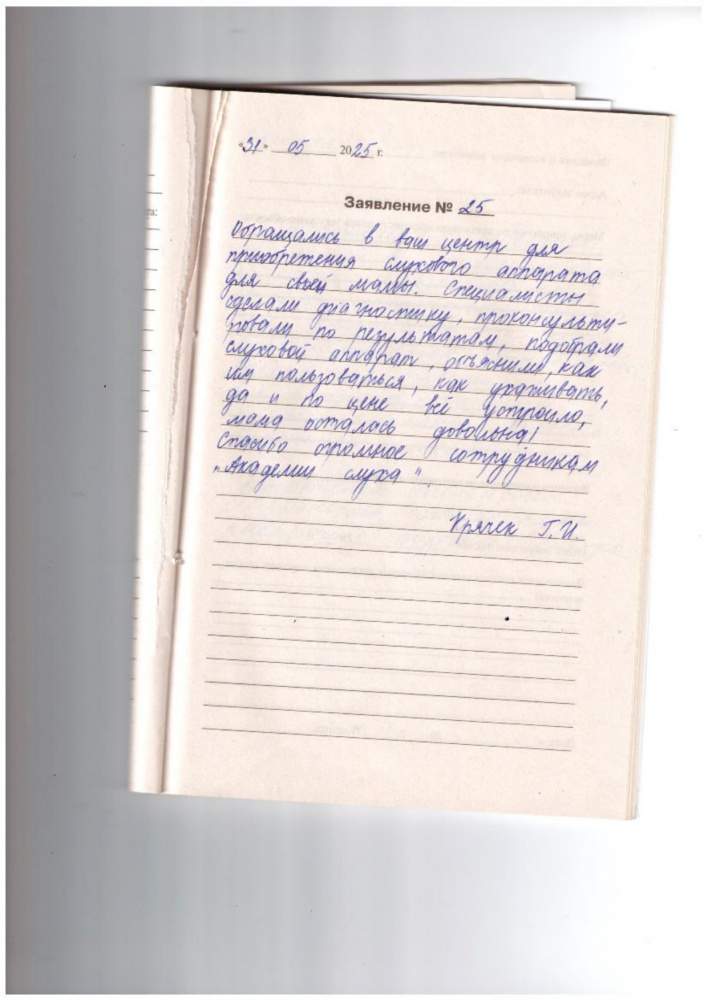 «31» 05 2025 г.
Заявление № 25
Обращались в ваш центр для
приобретения слухового аппарата
для своей мамы. Специалисты
сделали диагностику, проконсульти-
ровали по результатам, подобрали
слуховой аппарат, объяснили, как
им пользоваться, как ухаживать,
да и по цене всё устроило,
мама осталась довольна!
Спасибо огромное сотрудникам
"Академии слуха".
Крячек Г.И.